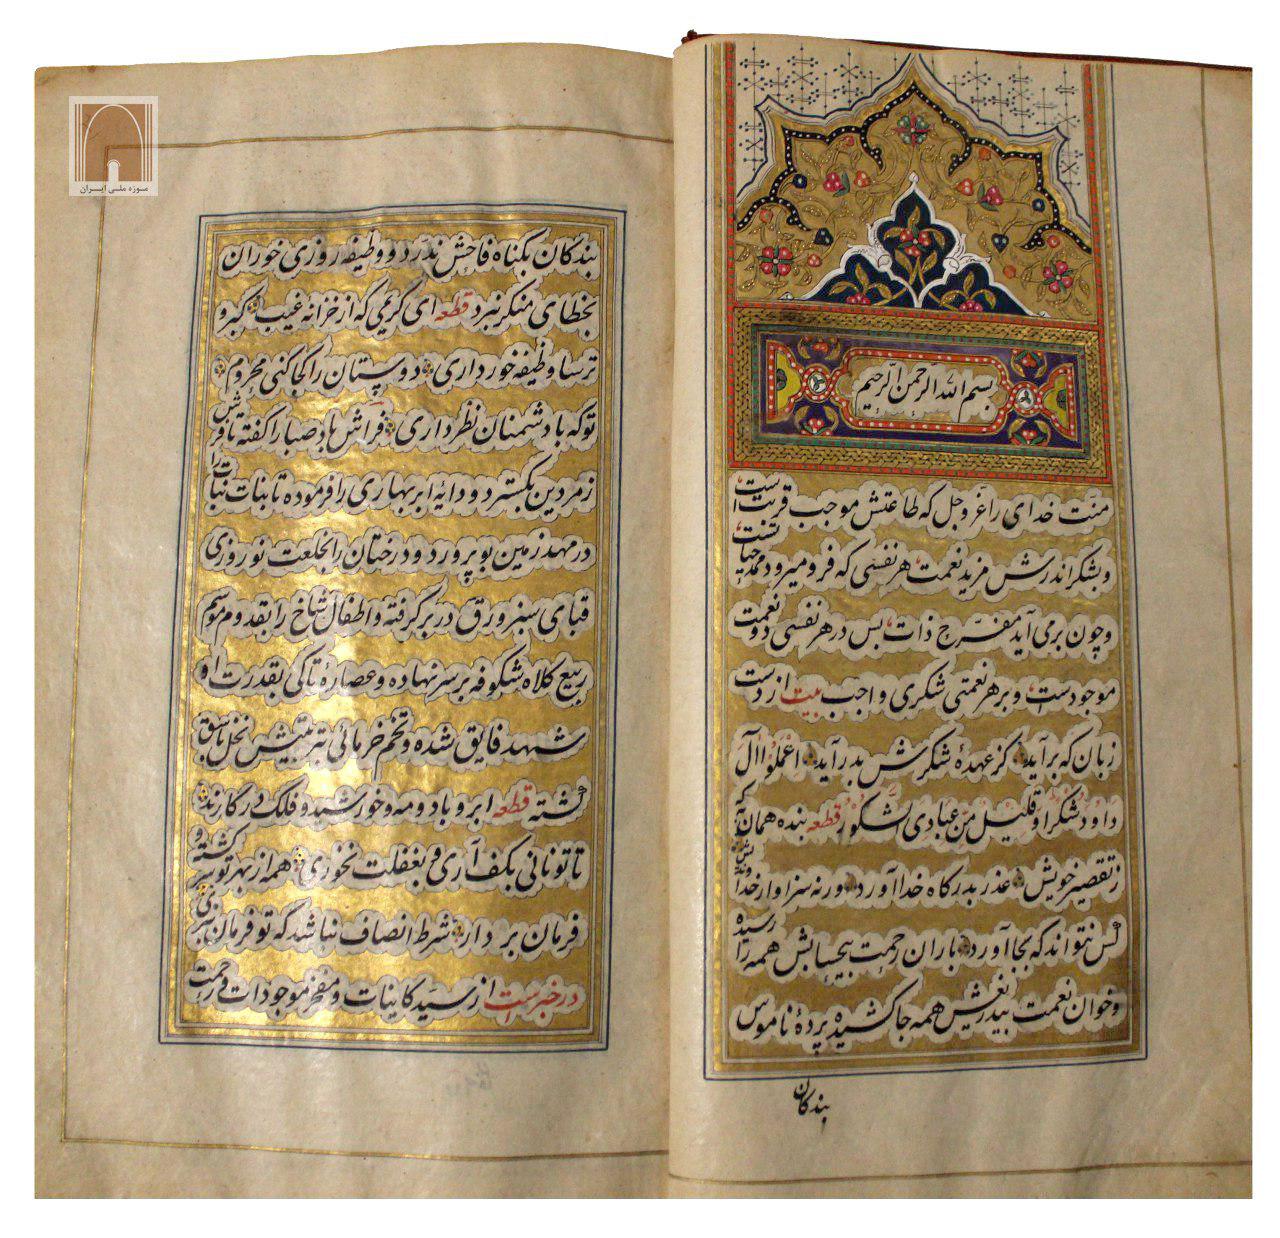 بسم الله الرحمن الرحیم
منت خدای را عز و جل که طاعتش موجب قربتست
و بشکر اندرش مزید نعمت هر نفسی که فرو میرود ممد حیاتست
و چون بر می آید مفرح ذات پس در هر نفسی دو نعمت
موجودست و بر هر نعمتی شکری واجب بیت از دست
زبان که برآید کز عهدهٔ شکرش بدر آید اعملوا آل
داود شکرا و قلیل من عبادی الشکور قطعه بنده همان به که
ز تقصیر خویش عذر بدرگاه خدا آورد ورنه سزاوار خداوندیش
کس نتواند که بجا آورد باران رحمت بیحسابش همه را رسیده
و خوان نعمت بیدریغش همه جا کشیده پردهٔ ناموس
بندکان
بندکان بکناه فاحش ندرد و وظیفه روزی خوران
بخطای منکر نبرد قطعه ای کریمی که از خزانه غیب کبر و
ترسا وظیفه خور داری دوستان را کجا کنی محروم
تو که با دشمنان نظر داری فراش باد صبا را کفته تا فرش
زمردین بکسترد و دایهٔ ابر بهاری را فرموده تا بنات نبات را
در مهد زمین بپرورد و درختان را بخلعت نوروزی
قبای سبز ورق در بر کرفته و اطفال شاخ را بقدوم موسم
ربیع کلاه شکوفه بر سر نهاده و عصارهٔ تاکی بقدرت او
شهد فایق شده و تخم خرمائی بتربیتش نخل باسق
کشته قطعه ابر و باد و مه و خورشید و فلک در کارند
تا تو نانی بکف آری و بغفلت نخوری همه از بهر تو سرکشته و
فرمان بردار شرط انصاف نباشد که تو فرمان نبری
در خبرست از سید کاینات و مفخر موجودات و رحمت
موزه ملی ایران